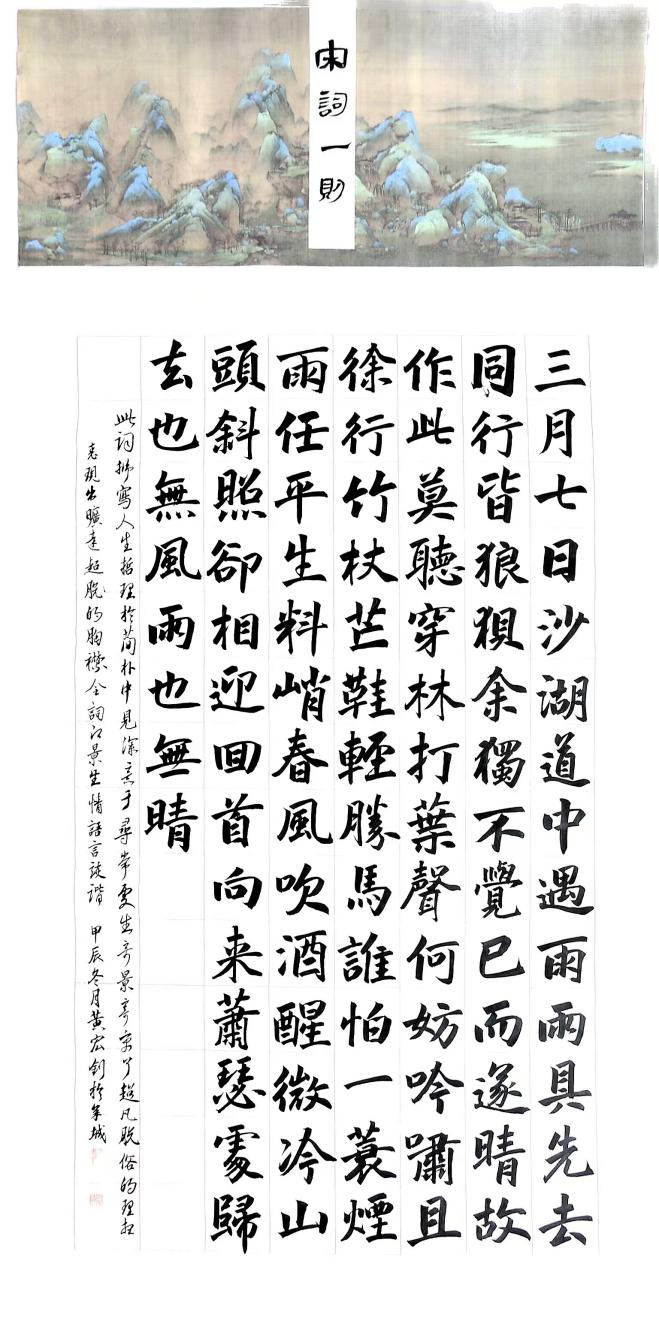 宋詞一則
三月七日沙湖道中遇雨雨具先去
同行皆狼狽余獨不覺已而遂晴故
作此莫聽穿林打葉聲何妨吟嘯且
徐行竹杖芒鞋輕勝馬誰怕一蓑煙
雨任平生料峭春風吹酒醒微冷山
頭斜照卻相迎回首向来蕭瑟處歸
去也無風雨也無晴
此词抒寫人生哲理於简朴中見深意于尋常處生奇景超凡脫俗的理想
意現出曠達超脫的胸襟全詞即景生情語言詼諧 甲辰冬月黄宏劍於羊城